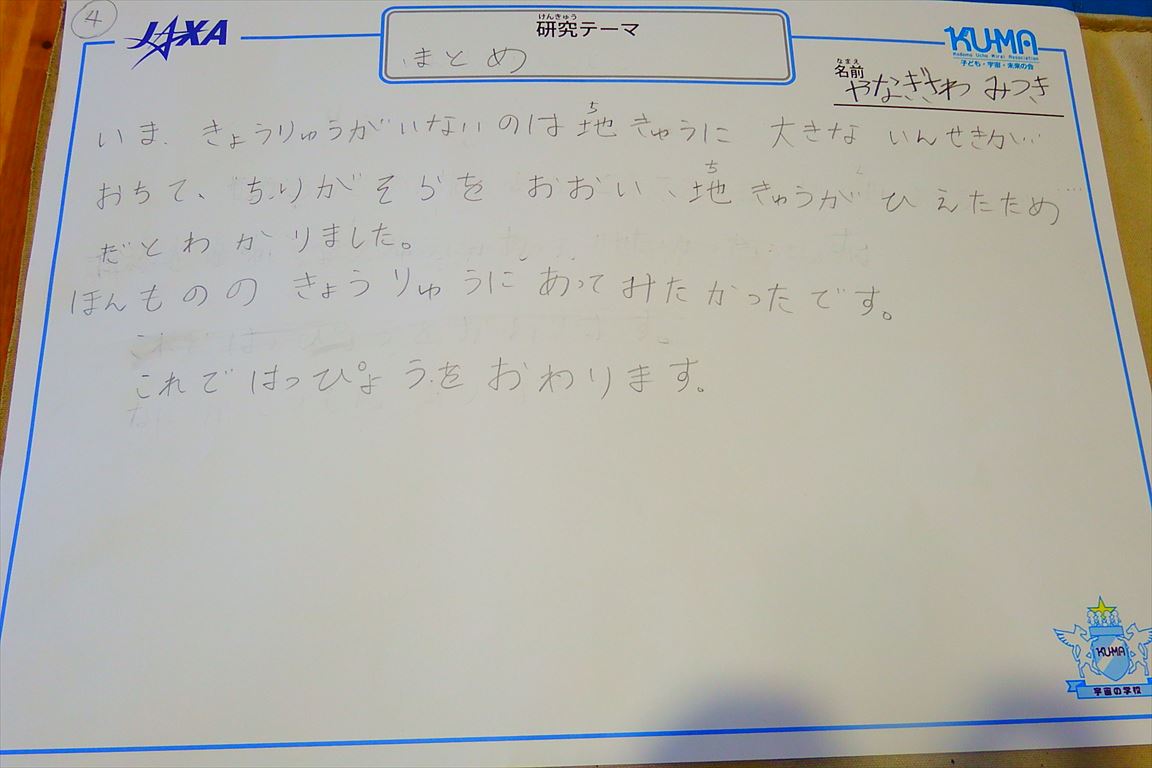 ④
JAXA
けんきゅう
研究テーマ
まとめ
KU-MA
Kodomo Uchu Mirai Association
子ども・宇宙・未来の会
なまえ
名前
やなぎさわ みつき
ち
いま、きょうりゅうがいないのは地きゅうに 大きな いんせきが
ち
おちて、ちりがそらを おおい、地きゅうが ひえたため
だとわかりました。
ほんものの きょうりゅうに あってみたかったです。
これで はっぴょうを おわります。
KU-MA
宇宙の学校